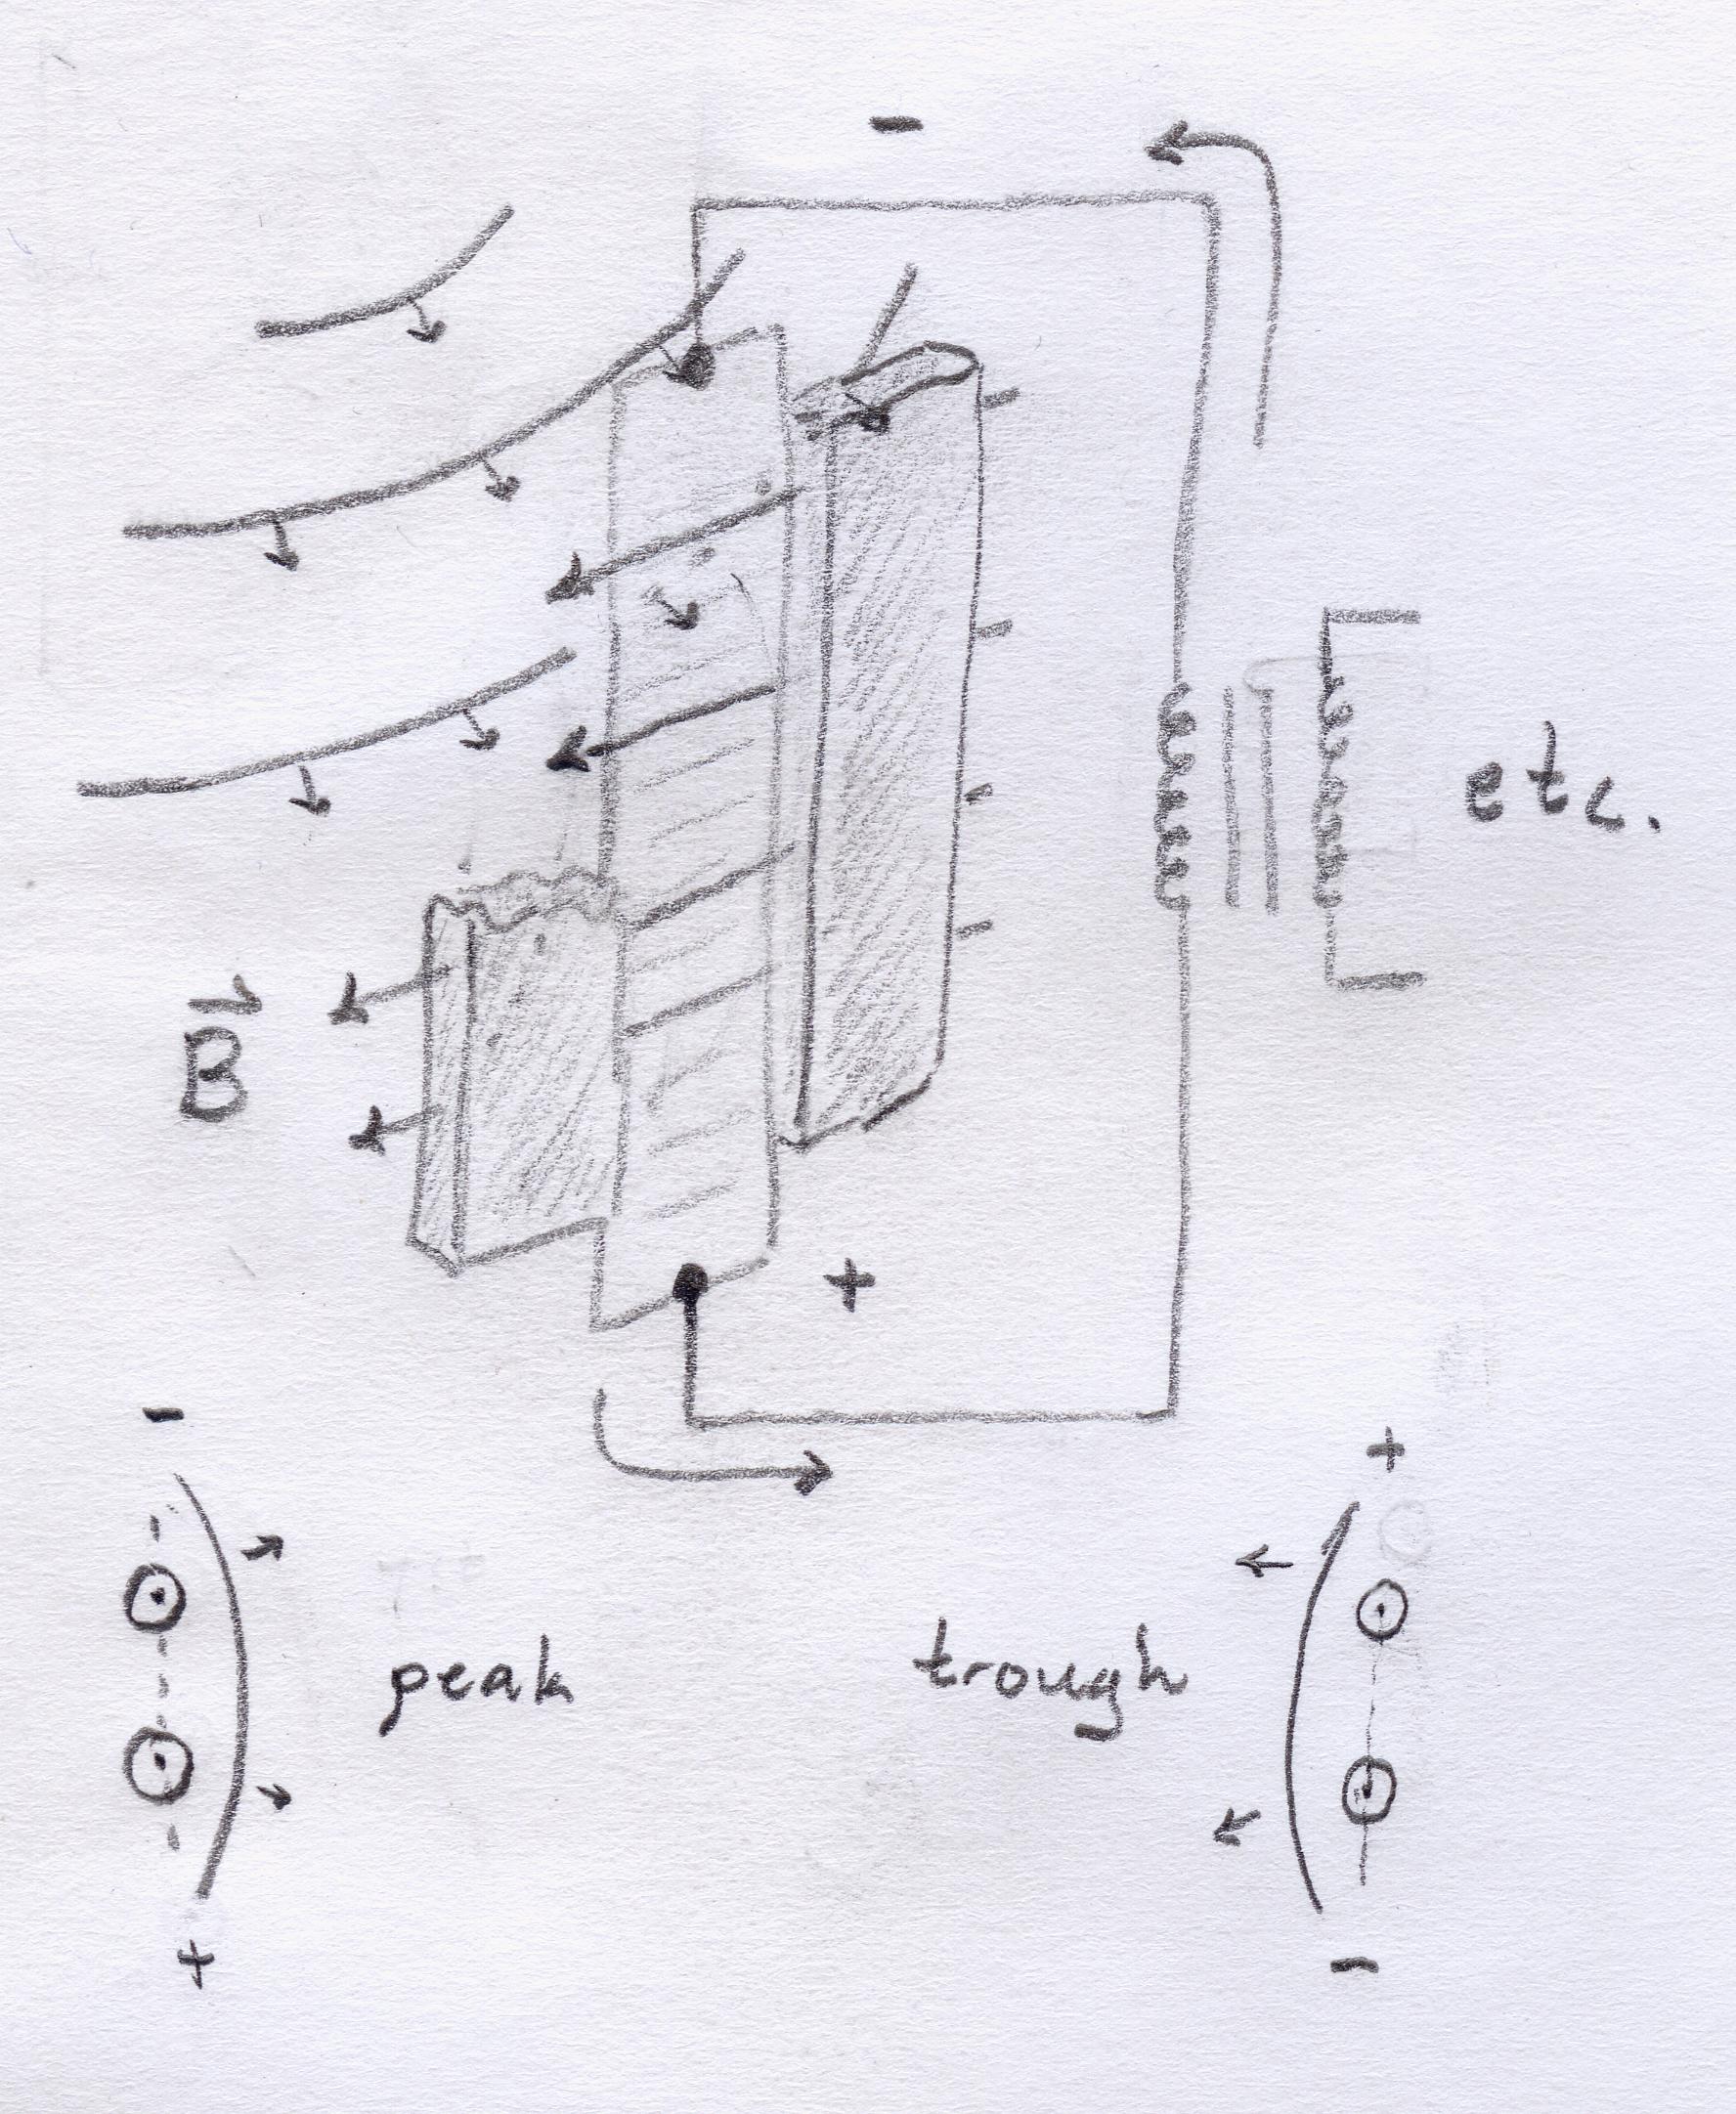 -
etc.
B⃗
+
-
+
peak
trough
+
-